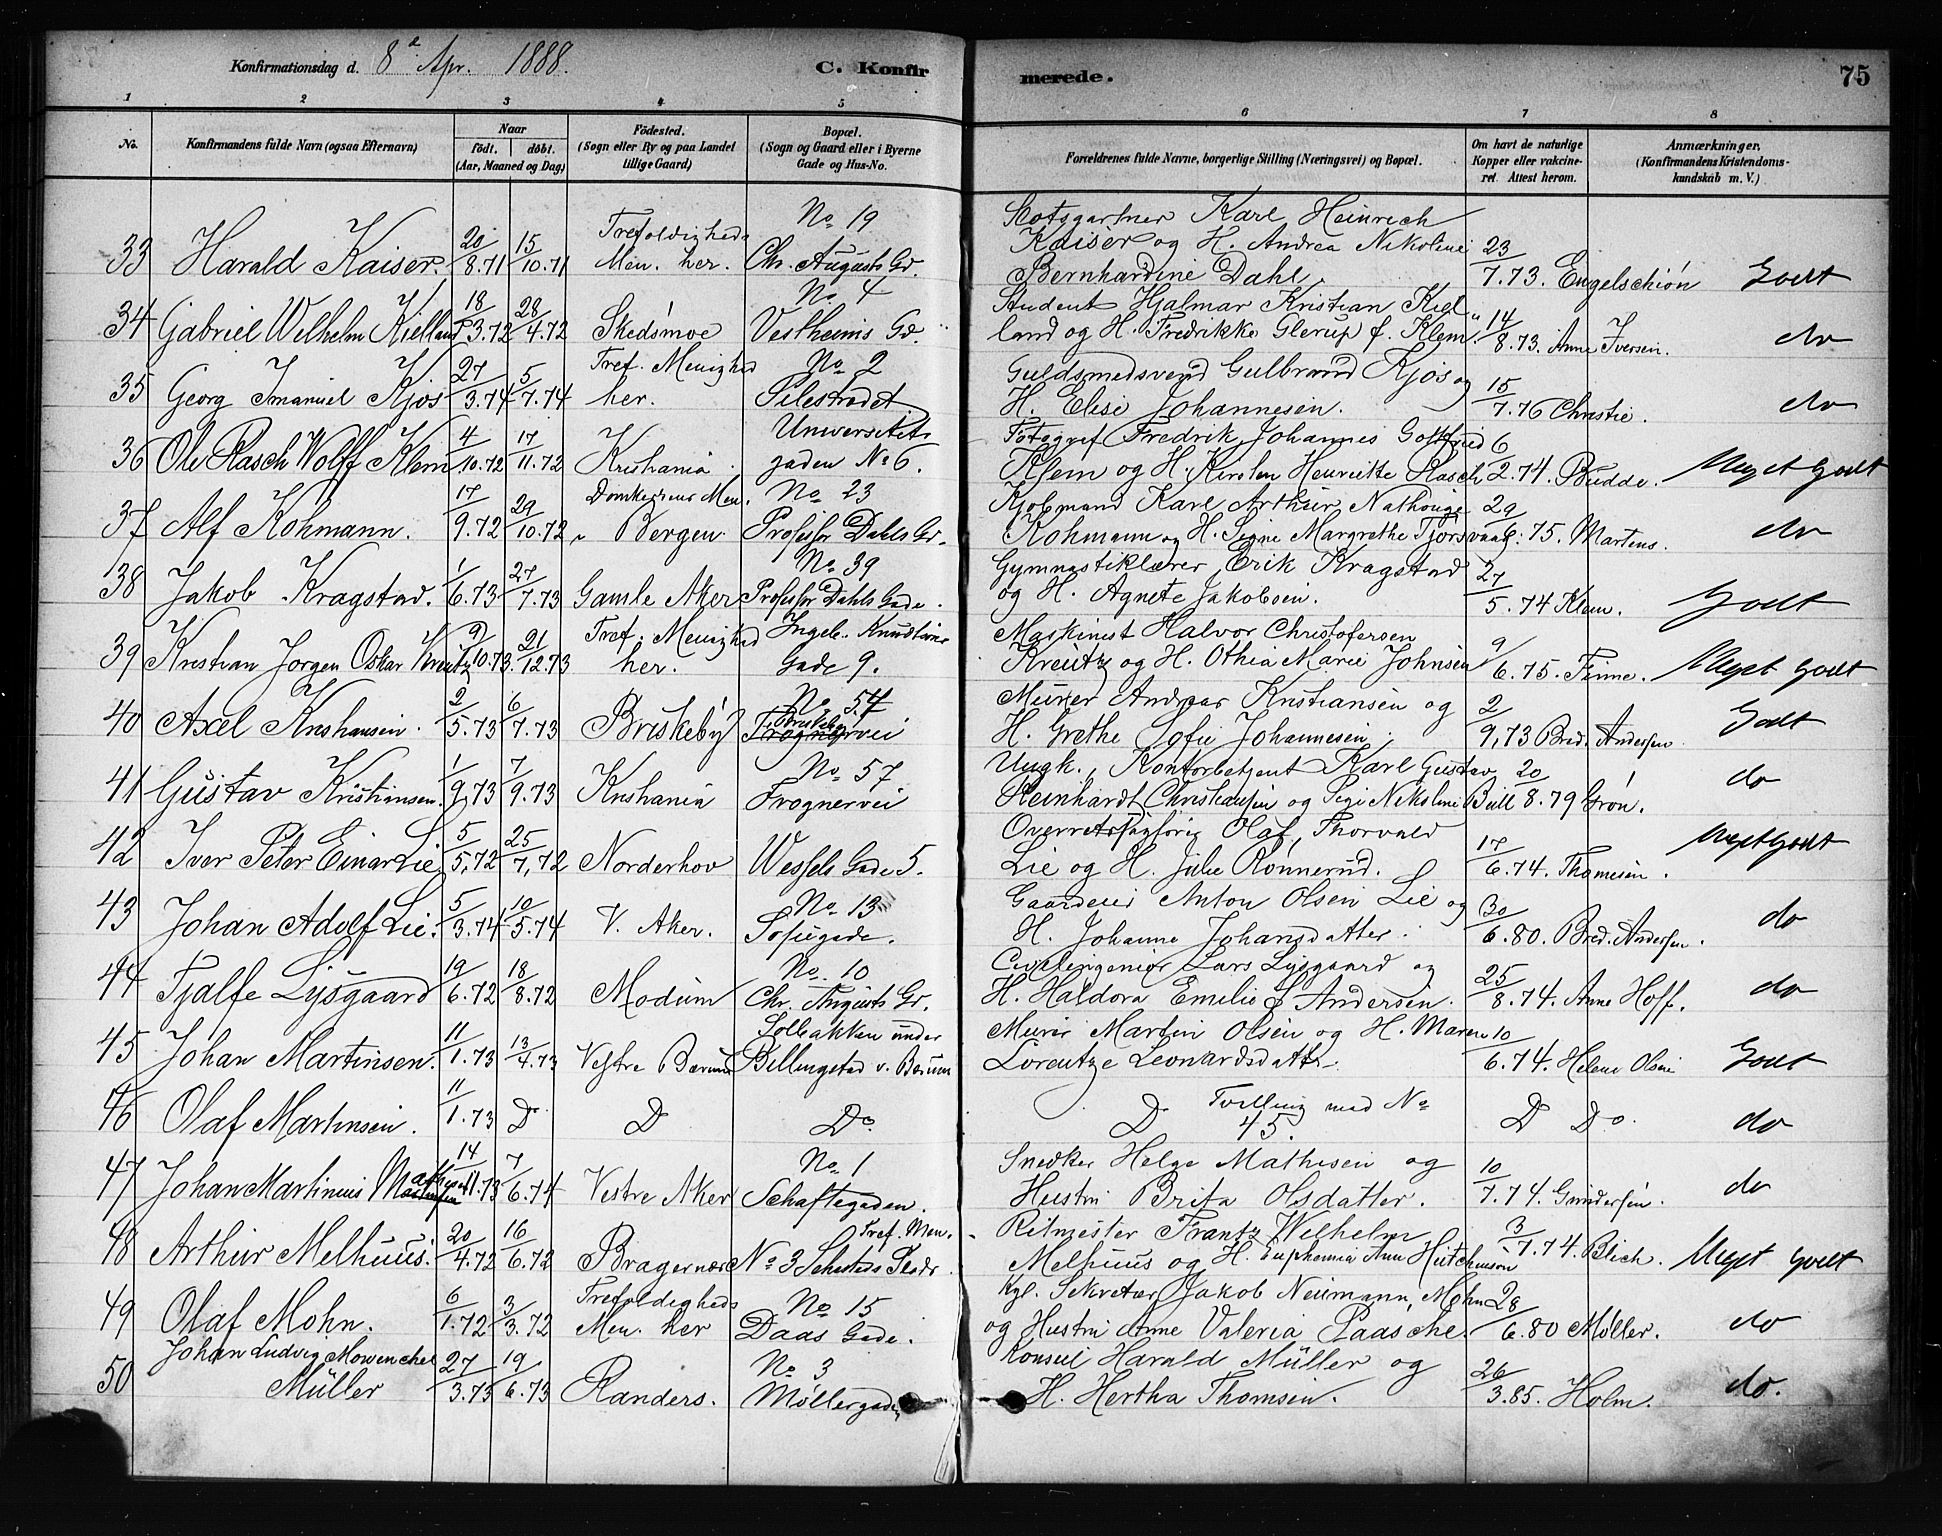 Konfirmationsdag d. 8de Apr. 1888. C. Konfirmerede. 75
1 2 3 4 5 6 7 8
No. Konfirmandens fulde Navn (ogsaa Efternavn) Naar födt. döbt. (Aar, Maaned og Dag) Födested. (Sogn eller By og paa Landet tillige Gaard) Bopæl. (Sogn og Gaard eller i Byerne Gade og Hus-No. Forældrenes fulde Navne, borgerlige Stilling (Næringsvei) og Bopæl. Om havt de naturlige Kopper eller vakcineret. Attest herom. Anmærkninger. (Konfirmandens Kristendomskundskab m. V.)
33 Harald Kaiser. 20/8.71 15/10.71 Trefoldigheds Men. her. No 19 Chr. Augusts Gd. Slotsgartner Karl Heinrich Kaiser og H. Andrea Nikoline Bernhardine Dahl. 23/7.73. Engelschiøn Godt
34 Gabriel Wilhelm Kielland 18/3.72 28/4.72 Skedsmoe No 4 Vestheims Gd. Student Hjalmar Kristian Kielland og H. Fredrikke Glerup f. Klem. 14/8.73. Anne Iversen. do
35 Georg Imanuel Kjos 27/3.74 5/7.74 Tref. Menighed her. No 2 Pilestrædet Guldsmedsvend Gulbrand Kjos og H. Elise Johannesen. 15/7.76 Christie. do
36 Ole Rasch Wolff Klem 4/10.72 17/11.72 Kristiania. Universitetsgaden No 6. Fotograf Fredrik Johannes Gottfried Klem og H. Kirsten Henriette Rasch 6/2.74. Budde. Meget Godt
37 Alf Kohmann. 17/9.72 29/10.72 Domkirkens Men. Bergen. No 23 Professor Dahls Gd. Kjøbmand Karl Arthur Nathonige Kohmann og H. Signe Margrethe Tjorsvaag 29/6.75. Martens. do
38 Jakob Kragstad. 1/6.73 27/7.73 Gamle Aker No 39 Professor Dahls Gade. Gymnastiklærer Erik Kragstad og H. Agnete Jakobsen. 27/5.74 Klem. Godt
39 Kristian Jørgen Oskar Kreutz 9/10.73. 21/12.73 Tref. Menighed her. Ingeb. Knudtsens Gade 9. Maskinist Halvor Christofersen Kreutz og H. Othia Marie Johnsen 9/6.75. Finne. Meget Godt
40 Axel Kristiansen. 2/5.73 6/7.73 Briskeby No 54 Briskeby Frognervei Murer Andreas Kristiansen og H. Grethe Sofie Johannesen. 2/9.73 Bred. Andersen Godt
41 Gustav Kristiansen. 1/9.73 7/9.73 Kristiania No 57 Frognervei Ungk., Kontorbetjent Karl Gustav Reinhardt Christiansen og Sigi Nikoline Bull 20/8.79 Grøn. do
42 Iver Peter Einar Lie 5/5.72 25/7.72 Norderhov Wessels Gade 5. Overretssagfører Olaf Thorvald Lie og H. Julie Rønnerud. 17/6.74. Thomesen. Meget Godt
43 Johan Adolf Lie. 5/3.74 10/5.74 V. Aker. No 13 Sofiegade. Gaardeier Anton Olsen Lie og H. Johanne Johansdatter. 30/6.80. Bred. Andersen. do
44 Tjalfe Lysgaard 19/6.72 18/8.72 Modum No. 10 Chr. Augusts Gd. Civilingeniør Lars Lysgaard og H. Haldora Emilie f. Andersen. 25/8.74. Anne Hoff. do
45 Johan Martinsen. 11/1.73 13/4.73 Vestre Bærum Solbakken under Billingstad v. Bærum Murer Martin Olsen og H. Maren Lorentze Leonardsdatter. 10/6.74. Helene Olsen Godt
46 Olaf Martinsen. 11/1.73 Do Do Do. Do Tvilling med No 45. Do Do. do
47 Johan Martinius Mathesen Martinsen 14/11.73 7/6.74 Vestre Aker No 1 Schaftegaden. Snedker Helge Mathisen og Hustru Brita Olsdatter. 10/7.74. Gundersen. do
48 Arthur Melhuus. 20/4.72 16/6.72 Bragernæs Tref. Men. No 3 Sehesteds Pladr. Ritmester Frantz Wilhelm Melhuus og H. Euphemia Ann Hutchinson 3/7.74. Blich. Meget Godt
49 Olaf Mohn. 6/1.72 3/3.72 Trefoldigheds Men. her No 15 Daas Gade. Kgl. Sekretær Jakob Neumann Mohn og Hustru Anne Valeria Paasche. 28/6.80 Møller. do
50 Johan Ludvig Mowinckel Müller 27/3.73 19/6.73 Randers. No 3 Møllergaden Konsul Harald Müller og H. Hertha Thomsen. 26/3.85. Holm. do.